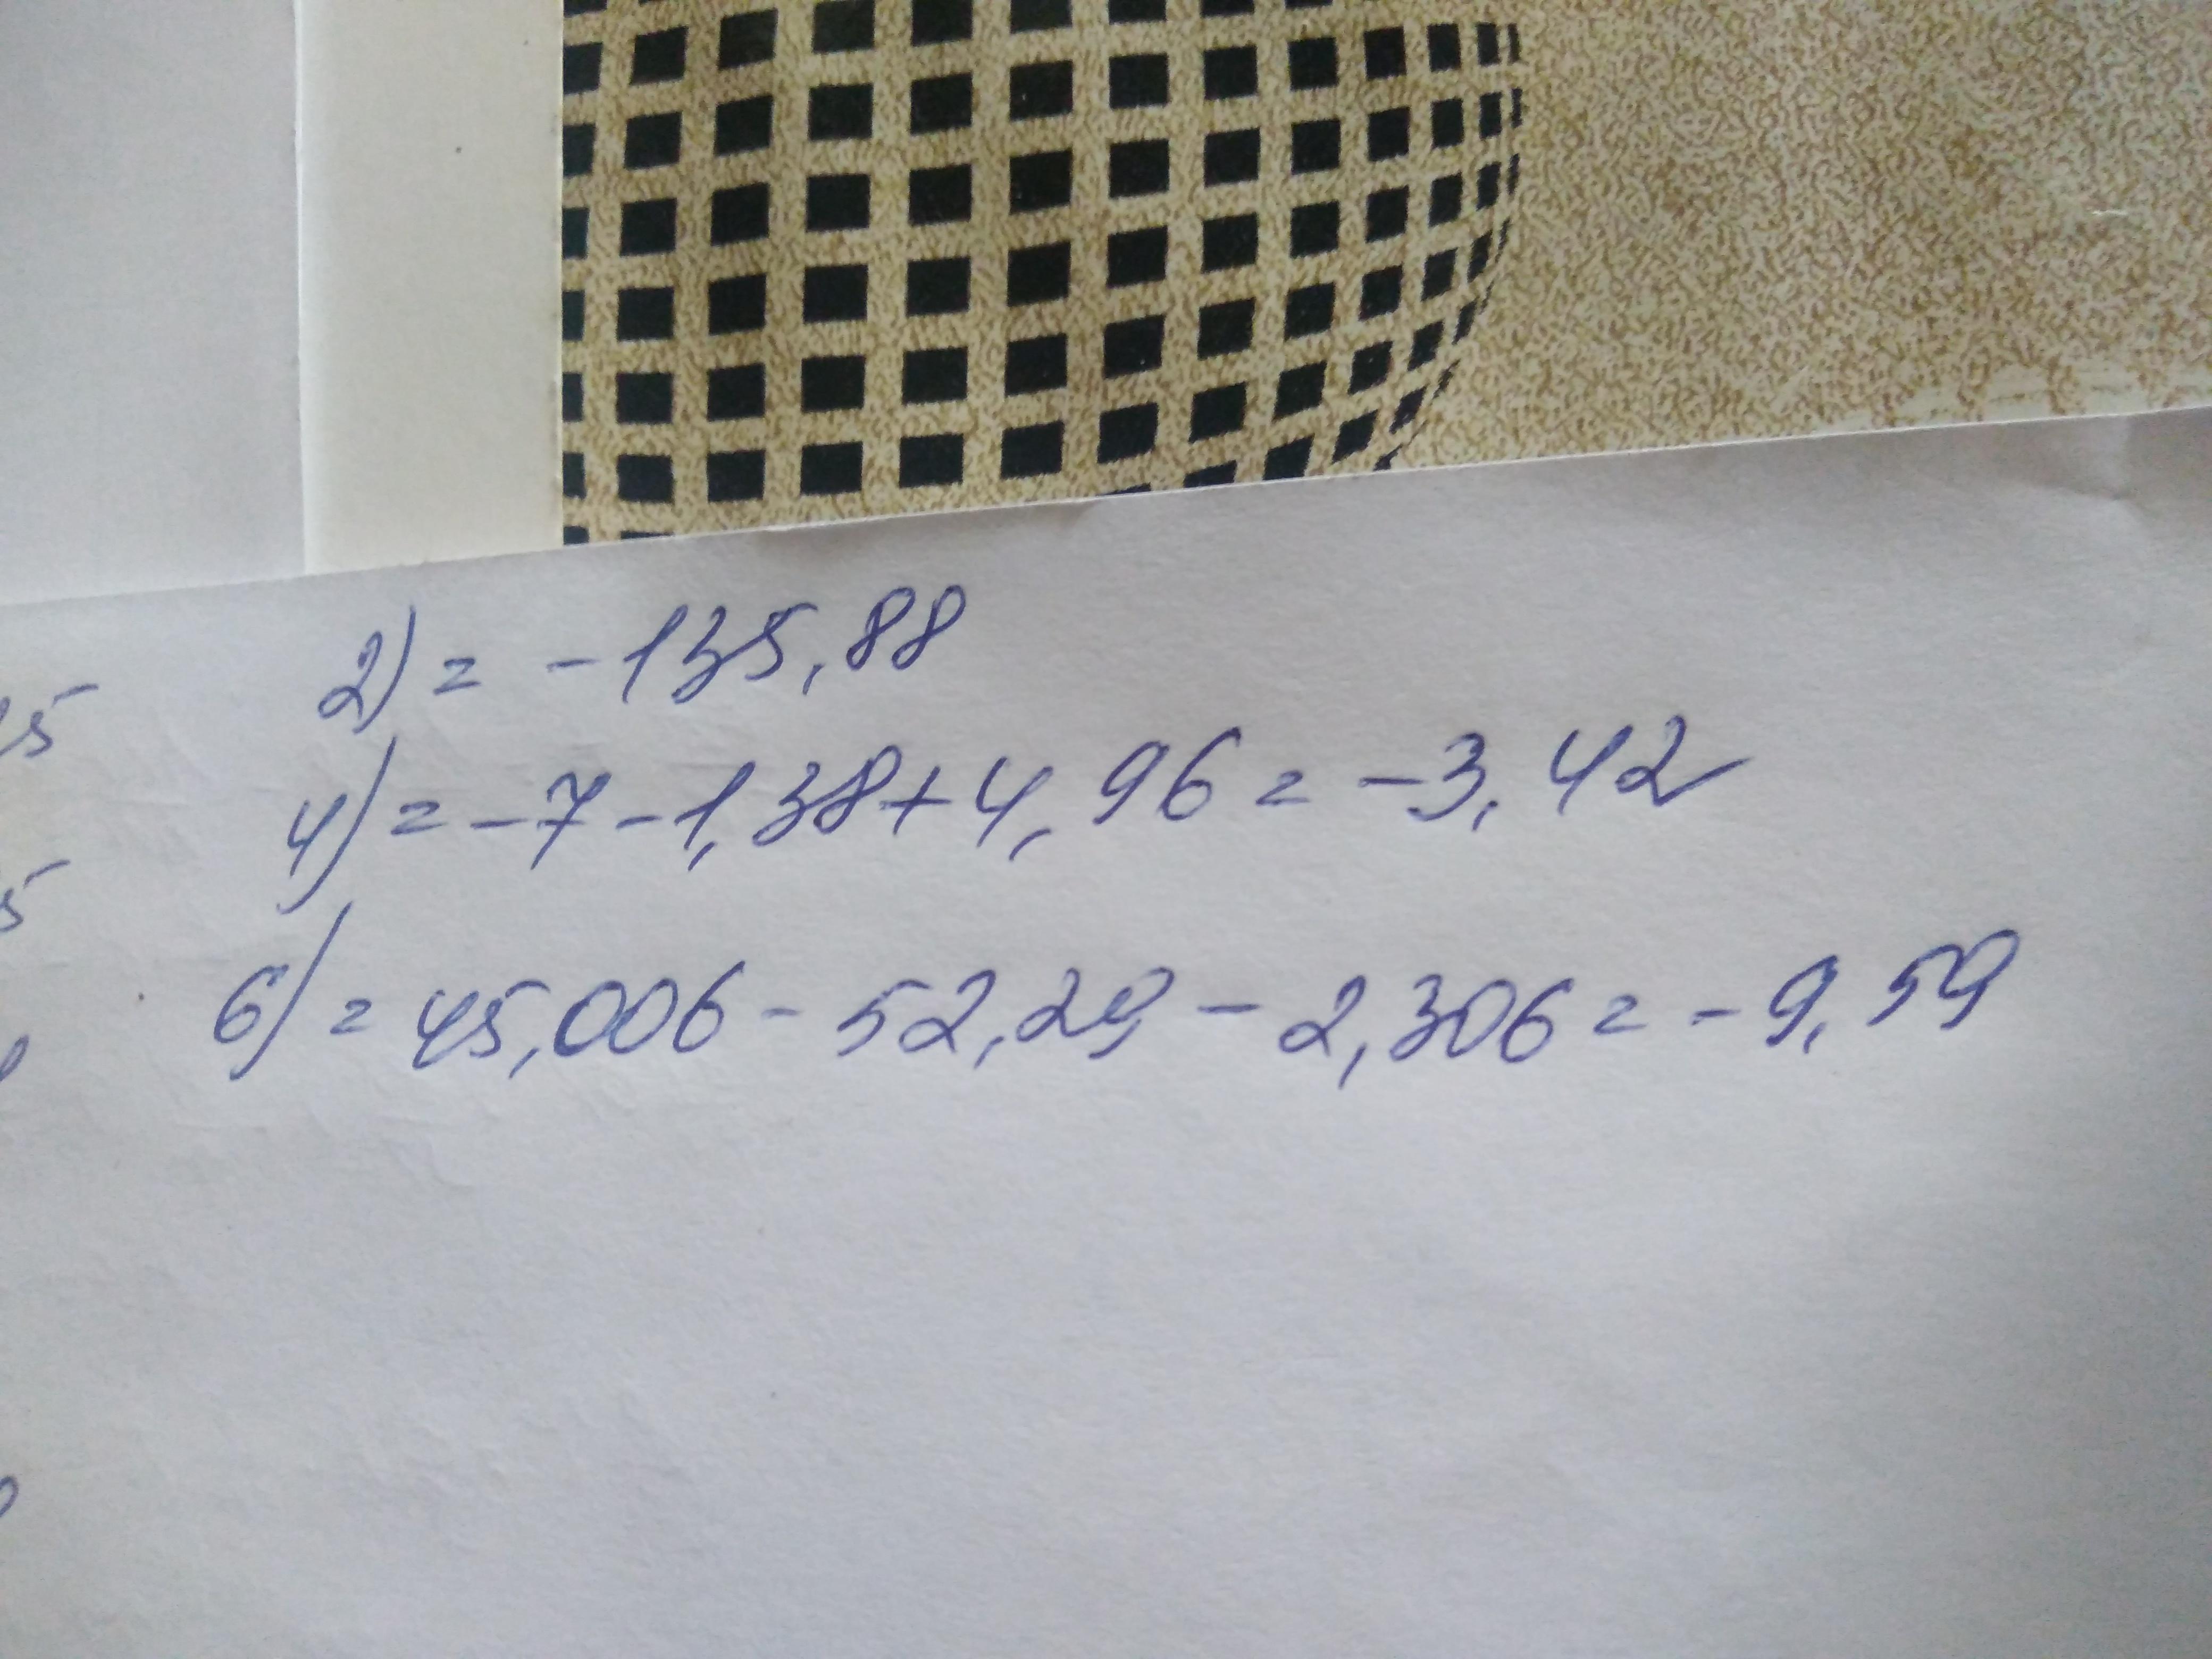 2) = -135,88
4) = -7-1,38+4,96 = -3,42
6) = 45,006 - 52,29 - 2,306 = -9,59